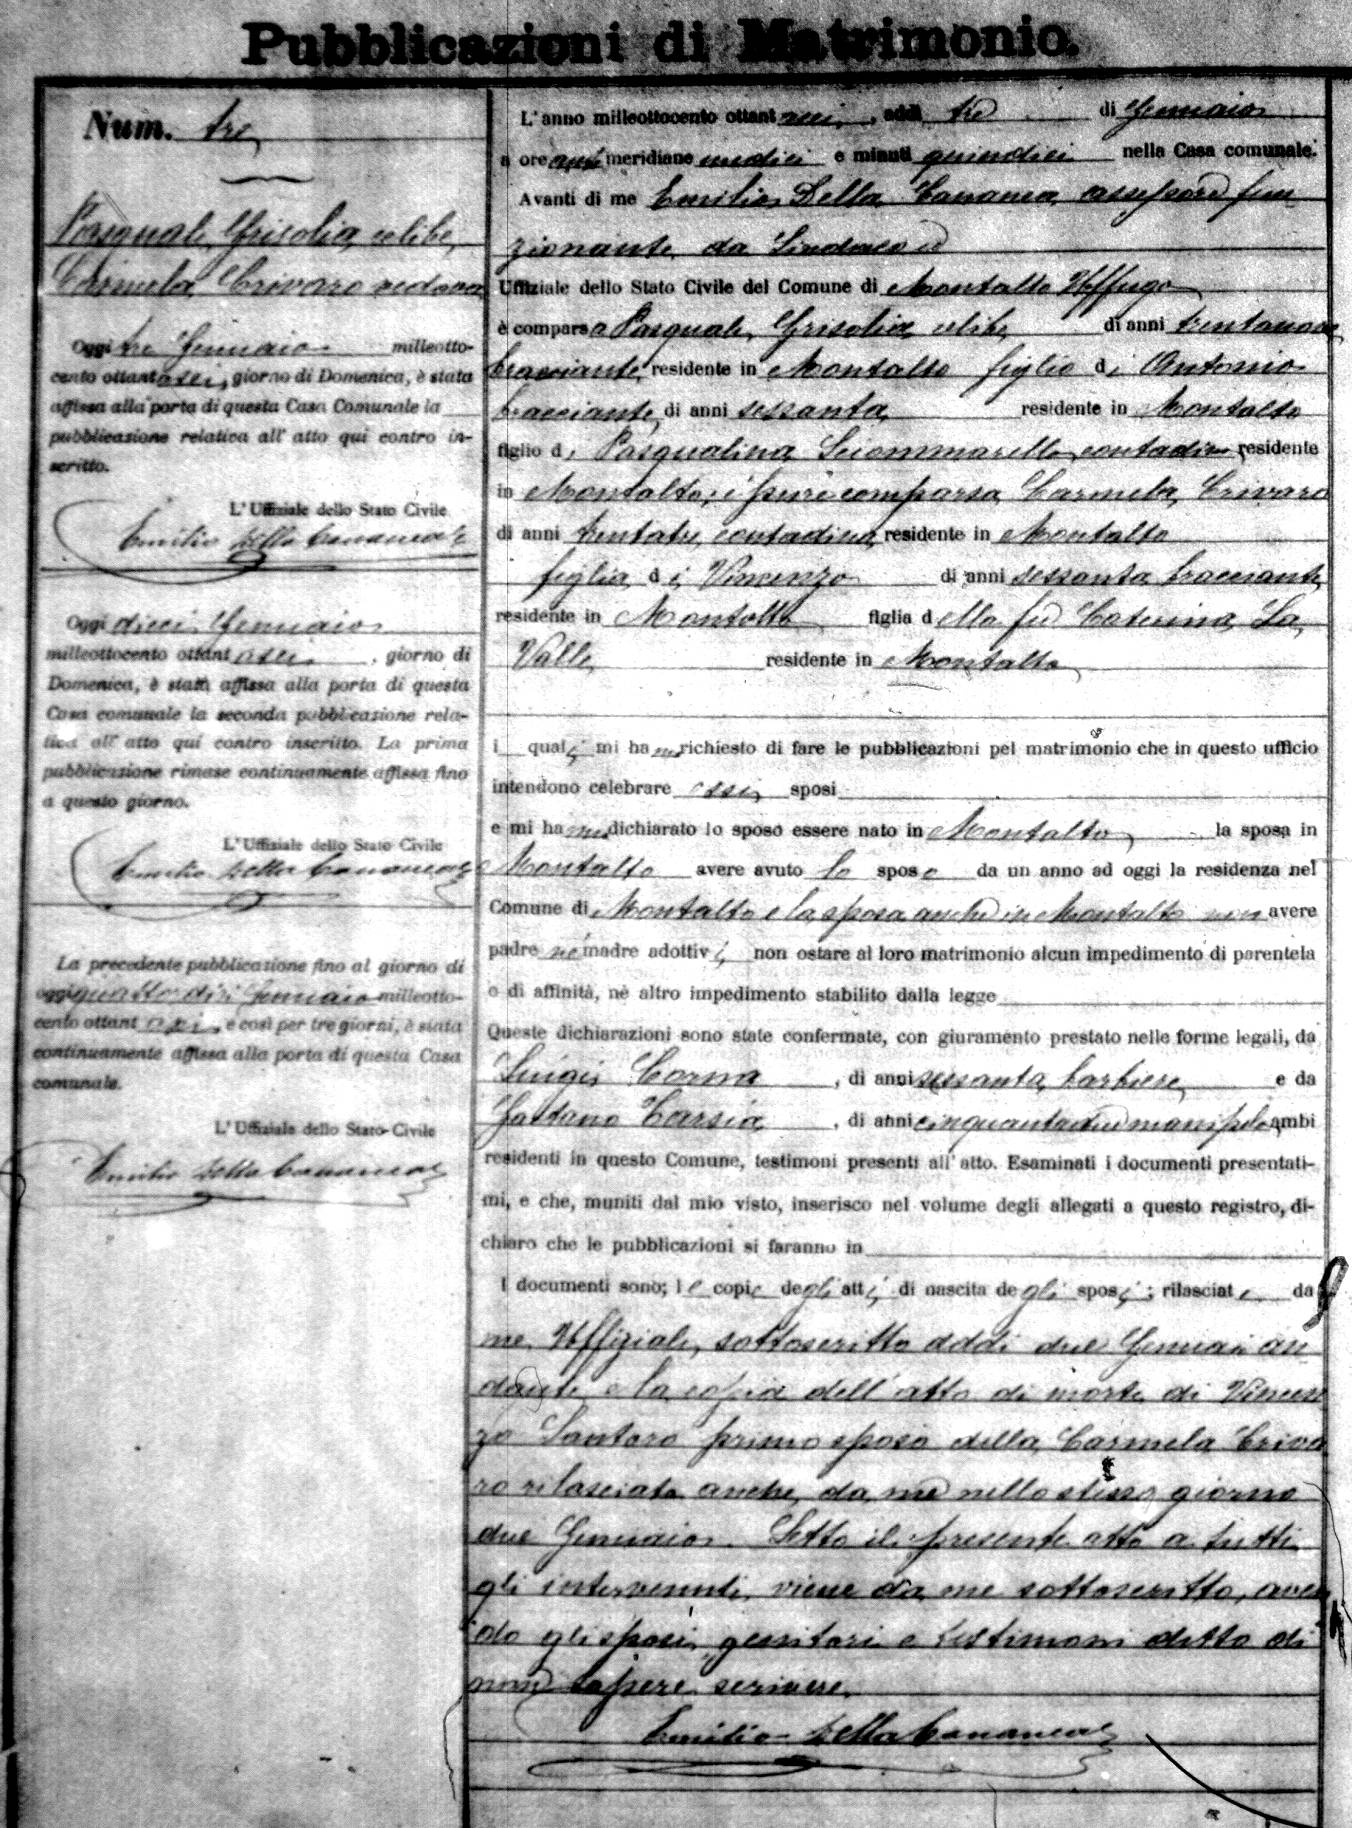 Pubblicazioni di Matrimonio.
Num. tre
Pasquale Grisolia celibe
Carmela Crivaro vedova
Oggi tre Gennaio milleotto-
cento ottantasei, giorno di Domenica, è stata
affissa alla porta di questa Casa Comunale la
pubblicazione relativa all' atto qui contro in-
scritto.
L'Uffiziale dello Stato Civile
Emilio Della Cananea
Oggi dieci Gennaio
milleottocento ottantasei, giorno di
Domenica, è stata affissa alla porta di questa
Casa comunale la seconda pubblicazione rela-
tiva all' atto qui contro inscritto. La prima
pubblicazione rimase continuamente affissa fino
a questo giorno.
L'Uffiziale dello Stato Civile
Emilio Della Cananea
La precedente pubblicazione fino al giorno di
oggi quattordici Gennaio milleotto-
cento ottantasei, e così per tre giorni, è stata
continuamente affissa alla porta di questa Casa
comunale.
L'Uffiziale dello Stato Civile
Emilio Della Cananea
L'anno milleottocento ottantasei, addì tre di Gennaio
a ore anti meridiane undici e minuti quindici nella Casa comunale.
Avanti di me Emilio Della Cananea assessore fun
zionante da Sindaco ed
Uffiziale dello Stato Civile del Comune di Montalto Uffugo
è comparso Pasquale Grisolia celibe di anni trentanove
bracciante, residente in Montalto figlio di Antonio
bracciante, di anni sessanta residente in Montalto
figlio di Pasqualina Sciommarella contadina residente
in Montalto; è pure comparsa Carmela Crivaro
di anni trentatre contadina residente in Montalto
figlia di Vincenzo di anni sessanta bracciante
residente in Montalto figlia della fu Caterina La
Valle residente in Montalto
i quali mi hanno richiesto di fare le pubblicazioni pel matrimonio che in questo ufficio
intendono celebrare essi sposi
e mi hanno dichiarato lo sposo essere nato in Montalto la sposa in
Montalto avere avuto lo sposo da un anno ad oggi la residenza nel
Comune di Montalto e la sposa anche in Montalto non avere
padre nè madre adottivi, non ostare al loro matrimonio alcun impedimento di parentela
o di affinità, nè altro impedimento stabilito dalla legge
Queste dichiarazioni sono state confermate, con giuramento prestato nelle forme legali, da
Luigi Corna, di anni sessanta barbiere e da
Gaetano Carsia, di anni ambi
residenti in questo Comune, testimoni presenti all' atto. Esaminati i documenti presentati-
mi, e che, muniti dal mio visto, inserisco nel volume degli allegati a questo registro, di-
chiaro che le pubblicazioni si faranno in
I documenti sono; le copie degli atti di nascita degli sposi; rilasciate da
me Uffiziale sottoscritto addì due Gennaio an
dante e la copia dell'atto di morte di Vincen
zo Santoro primo sposo della Carmela Criva
ro rilasciata anche da me nello stesso giorno
due Gennaio. Letto il presente atto a tutti
gli intervenuti, viene da me sottoscritto, aven
do gli sposi, genitori e testimoni detto di
non sapere scrivere.
Emilio Della Cananea